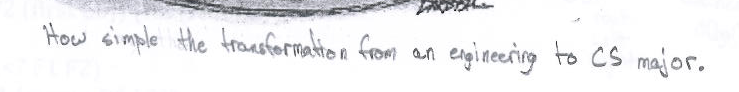 How simple the transformation from an engineering to CS major.